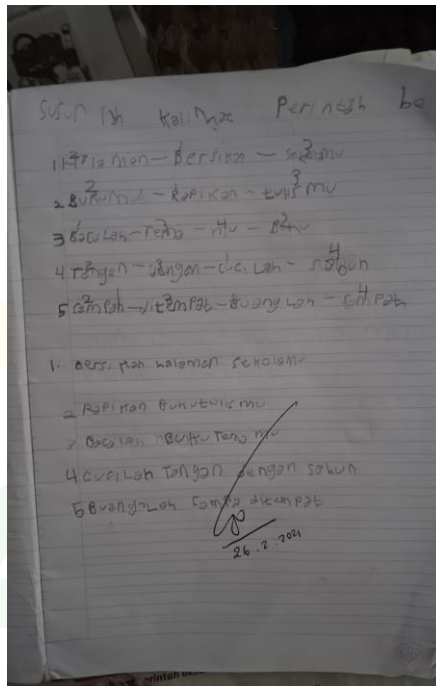 SUSUN lah Kalimat Perintah be
1 Halaman - Bersikan - sekolamu
2 Bukumu - Rapikan - tulismu
3 Bacalah - Tema - mu - Buku
4 Tangan - dengan - cucilah - sabun
5 Sampah - ditempat - Buanglah - sampah
1. Bersikan halaman sekolamu
2 Rapikan Bukutulismu
3 Bacalah Buku Tema mu
4 cucilah Tangan dengan sabun
5 Buanglah sampa ditempat
26.2.2021